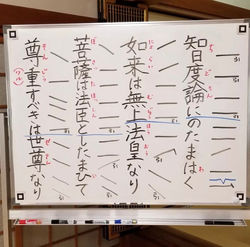 智度論にのたまはく
如来は無上法皇なり
菩薩は法臣としたまひて
尊重すべきは世尊なり